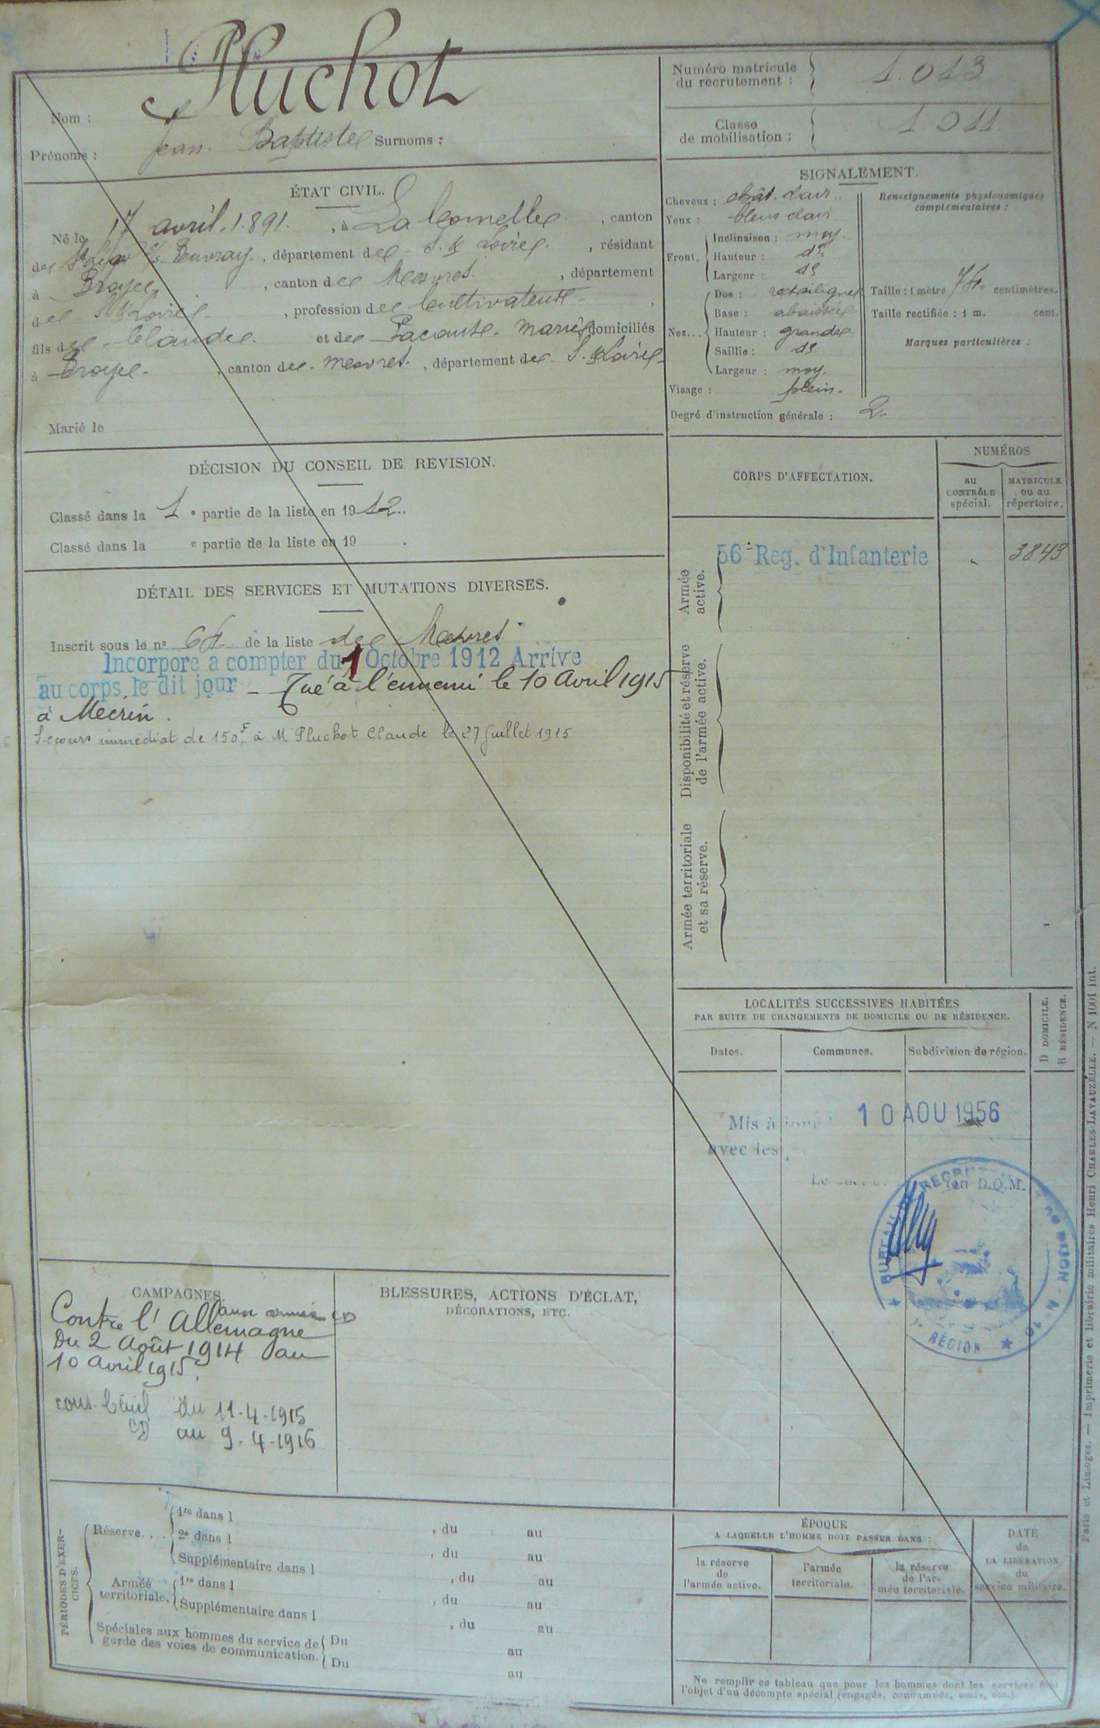 Pluchot
Nom :
Prénoms : Jean Baptiste Surnoms :
Numéro matricule
du recrutement : 1.013
Classe
de mobilisation : 1911
ÉTAT CIVIL.
Né le 17 avril 1891, à La Comelle, canton
de St Léger s/s Beuvray, département de S. & Loire, résidant
à Broye, canton de Mesvres, département
de S. & Loire, profession de Cultivateur,
fils de Claude et de Lacomte Marie domiciliés
à Broye, canton de Mesvres, département de S. & Loire
Marié le
SIGNALEMENT.
Cheveux : chât. clair
Yeux : bleus clair
Front. Inclinaison : moy.
Hauteur : do
Largeur : do
Nez... Dos : rectiligne
Base : abaissée
Hauteur : grande
Saillie : do
Largeur : moy.
Visage : plein.
Degré d'instruction générale : 2.
Renseignements physionomiques
complémentaires :
Taille : 1 mètre centimètres.
Taille rectifiée : 1 m. cent.
Marques particulières :
DÉCISION DU CONSEIL DE REVISION.
Classé dans la 1 e partie de la liste en 1912.
Classé dans la e partie de la liste en 19 .
DÉTAIL DES SERVICES ET MUTATIONS DIVERSES.
Inscrit sous le no de la liste de Mesvres
Incorporé à compter du 1 Octobre 1912 Arrivé
au corps le dit jour – Tué à l'ennemi le 10 Avril 1915
à Mécrin.
Secours immédiat de 150f à M Pluchot Claude le 27 Juillet 1915
CORPS D'AFFECTATION.
NUMÉROS
au
CONTRÔLE
spécial.
MATRICULE
ou au
répertoire.
Armée
active.
56e Reg. d'Infanterie
3843
Disponibilité et réserve
de l'armée active.
Armée territoriale
et sa réserve.
LOCALITÉS SUCCESSIVES HABITÉES
PAR SUITE DE CHANGEMENTS DE DOMICILE OU DE RÉSIDENCE.
Dates.
Communes.
Subdivision de région.
D DOMICILE.
R RÉSIDENCE.
Mis à jour 10 AOU 1956
avec les
D.O.M.
BUREAU DE RECRUTEMENT DIJON
RÉGION
CAMPAGNES
Contre l'Allemagne
aux armées CD
Du 2 Août 1914 au
10 Avril 1915.
du 11-4-1915
CD au 9-4-1916
BLESSURES, ACTIONS D'ÉCLAT,
DÉCORATIONS, ETC.
PÉRIODES D'EXER-
CICES.
Réserve.... 1re dans l , du au
2e dans l , du au
Supplémentaire dans l , du au
Armée
territoriale. 1re dans l , du au
Supplémentaire dans l , du au
Spéciales aux hommes du service de
garde des voies de communication. Du au
Du au
ÉPOQUE
A LAQUELLE L'HOMME DOIT PASSER DANS :
la réserve
de
l'armée active.
l'armée
territoriale.
la réserve
de l'ar-
mée territoriale.
DATE
de
LA LIBÉRATION
du
service militaire.
Ne remplir ce tableau que pour les hommes dont les services font
l'objet d'un décompte spécial (engagés, condamnés, omis, etc.).
Paris et Limoges. — Imprimerie et librairie militaires Henri CHARLES-LAVAUZELLE. — N 1001 int.